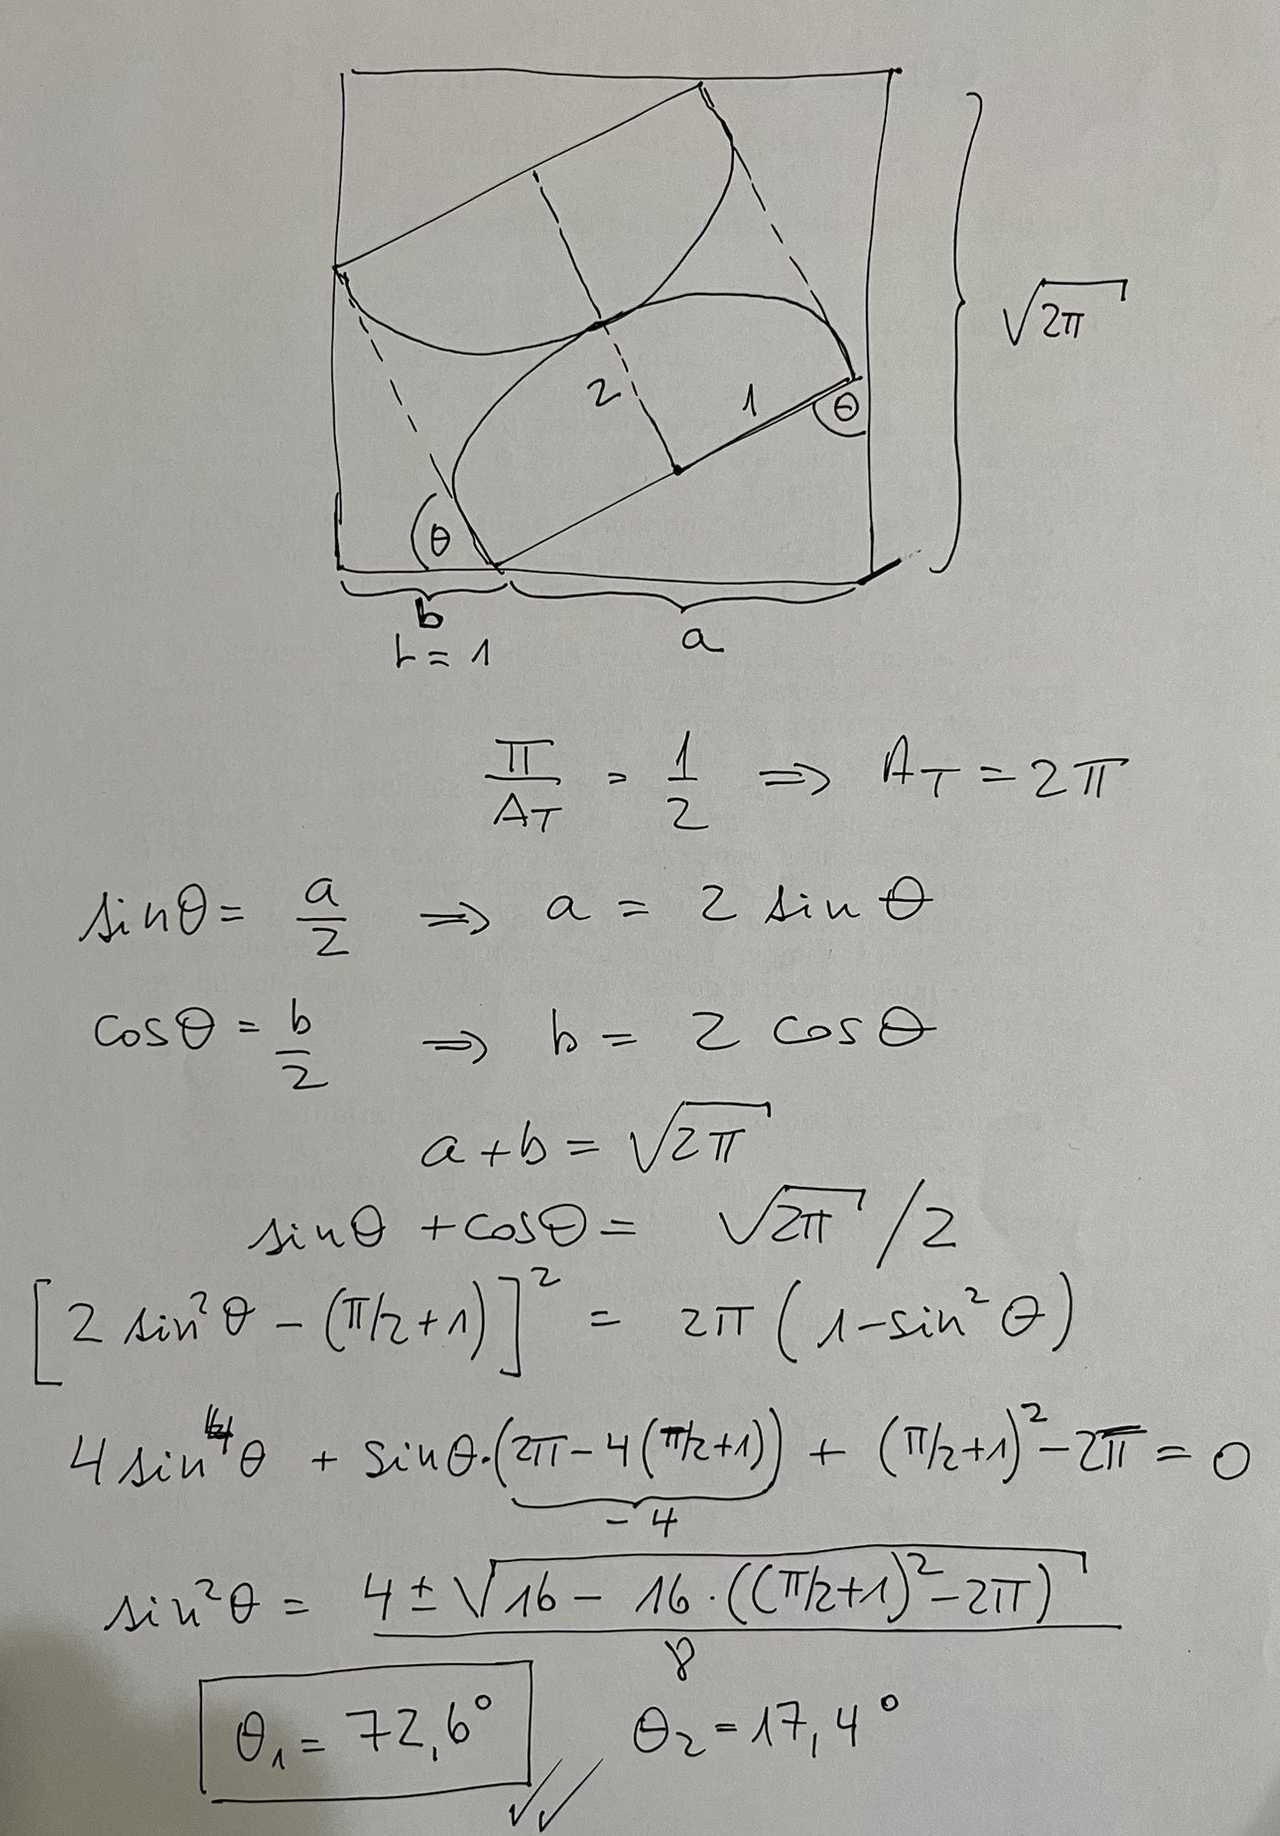 √2π
2
1
θ
θ
b
a
r = 1
π/A_T = 1/2 ⟹ A_T = 2π
sinθ = a/2 ⟹ a = 2 sinθ
cosθ = b/2 ⟹ b = 2 cosθ
a + b = √2π
sinθ + cosθ = √2π / 2
[2 sin²θ − (π/2+1)]² = 2π (1−sin²θ)
4 sin⁴θ + sinθ·(2π − 4(π/2+1)) + (π/2+1)² − 2π = 0
−4
sin²θ = (4 ± √(16 − 16·((π/2+1)² − 2π))) / 8
θ₁ = 72,6° θ₂ = 17,4°